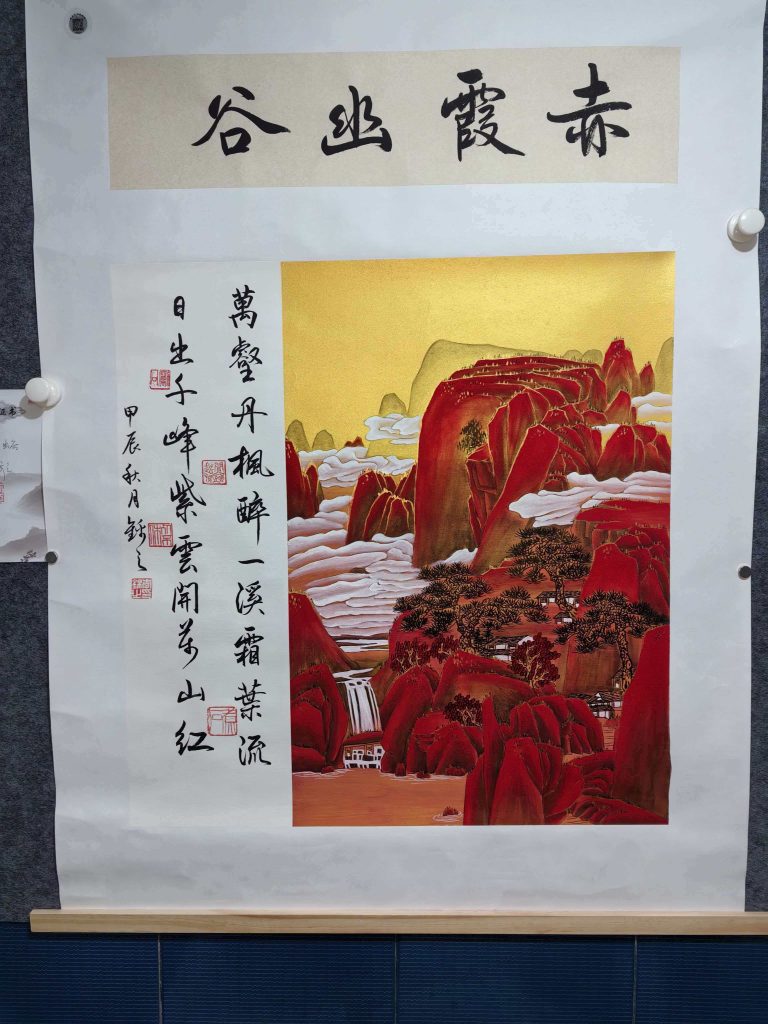 赤霞幽谷
萬壑丹楓醉一溪霜葉流
日出千峰紫雲開萬山紅
甲辰秋月